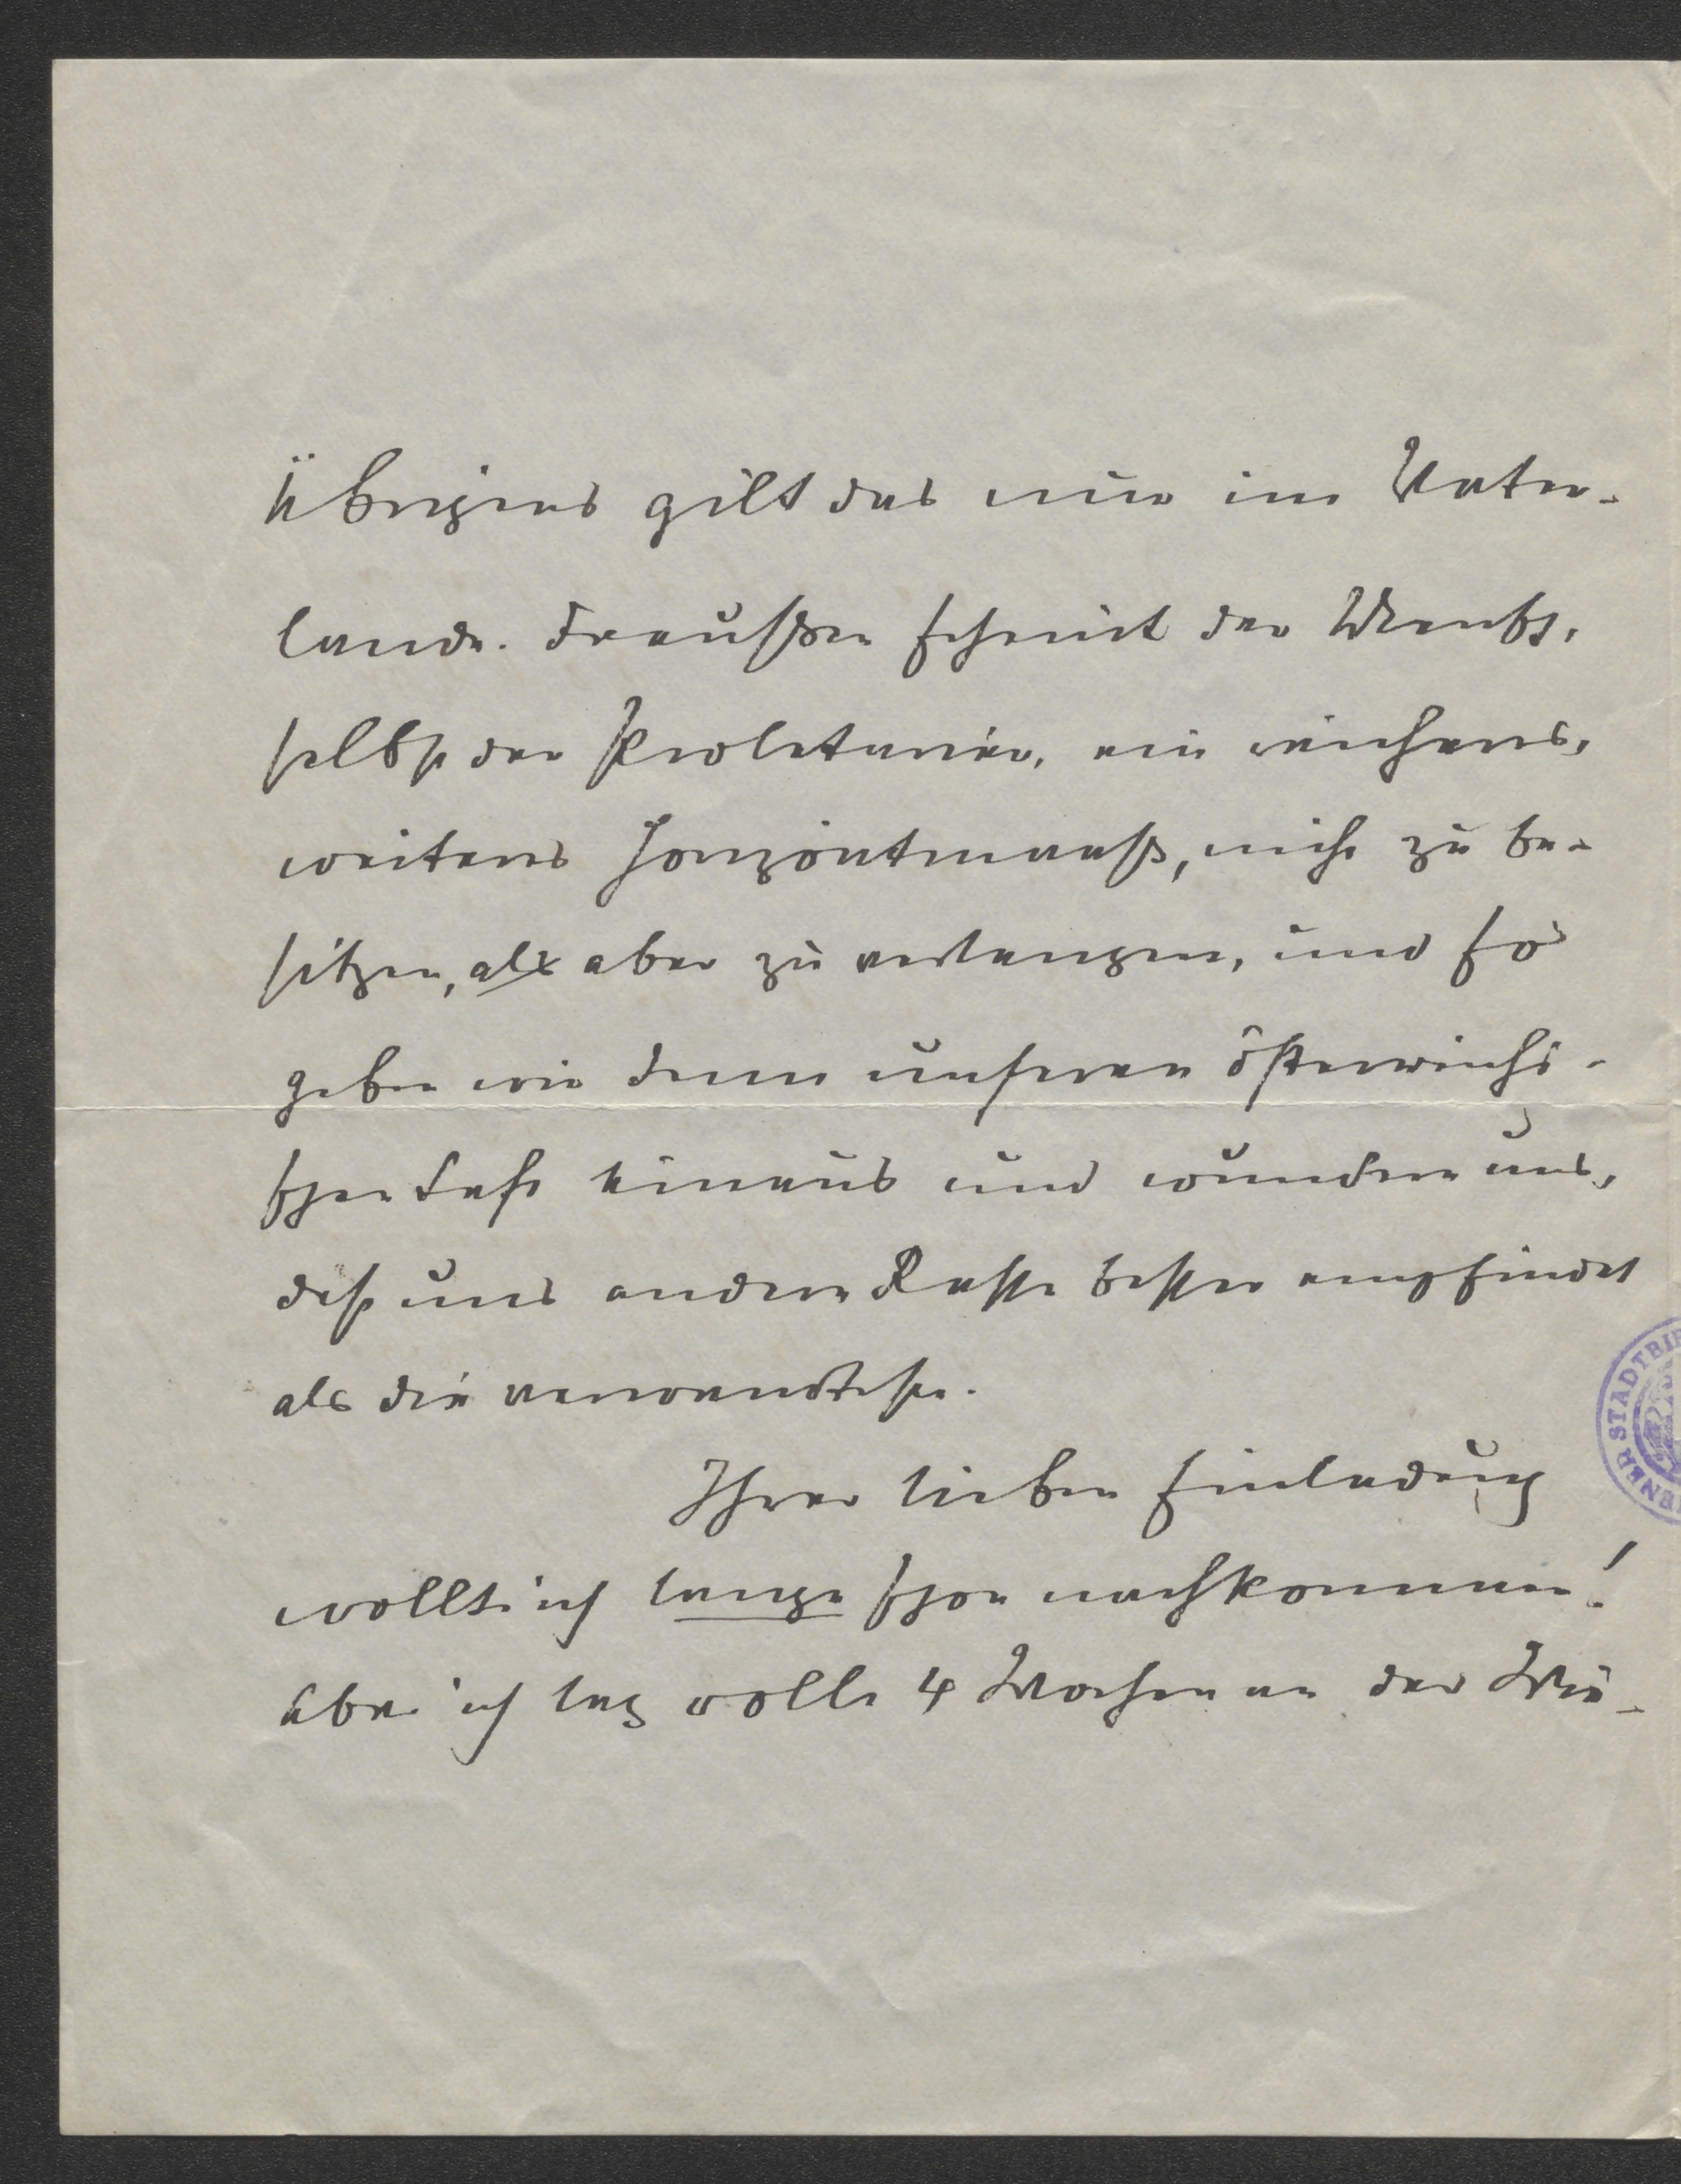 Übrigens gilt das nur im Vater-
lande. Draußen scheint der Mensch,
selbst der Proletarier, ein reicheres,
weiteres Horizontmaass, nicht zu be-
sitzen, als aber zu verlangen, und so
geben wir denn unseren österreichi-
schen Saft hinaus und wundern uns,
daß uns andere Rasse besser empfindet
als die verwandteste.
Ihrer lieben Einladung
wollt ich lange schon nachkommen!
Aber ich lag volle 4 Wochen an der
WIENER STADTBI